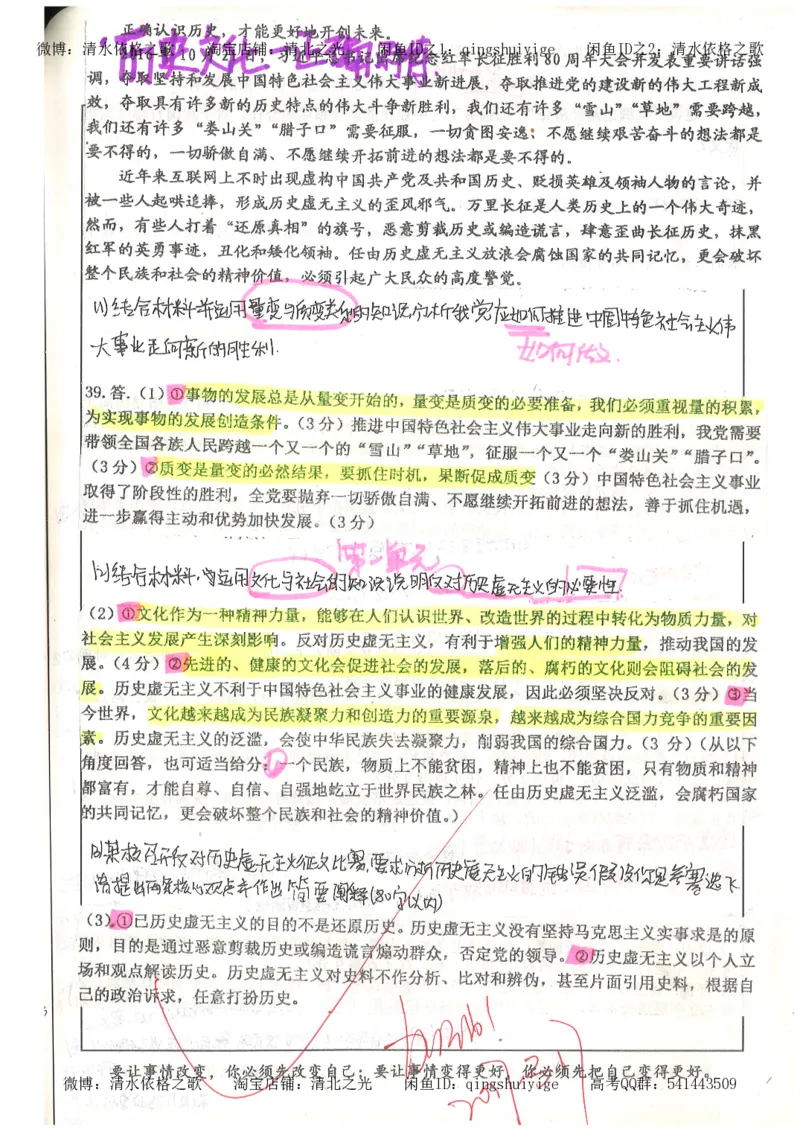 正确认识历史，才能更好地开创未来。
微博：清水依格之歌 淘宝店铺：清北之光 闲鱼ID之1：qingshuiyige 闲鱼ID之2：清水依格之歌
2016年10月 习近平总书记出席纪念红军长征胜利80周年大会并发表重要讲话强
调，夺取坚持和发展中国特色社会主义伟大事业新进展，夺取推进党的建设新的伟大工程新成
效，夺取具有许多新的历史特点的伟大斗争新胜利，我们还有许多“雪山”“草地”需要跨越，
我们还有许多“娄山关”“腊子口”需要征服，一切贪图安逸：不愿继续艰苦奋斗的想法都是
要不得的，一切骄傲自满、不愿继续开拓前进的想法都是要不得的。
近年来互联网上不时出现虚构中国共产党及共和国历史、贬损英雄及领袖人物的言论，并
被一些人起哄追捧，形成历史虚无主义的歪风邪气。万里长征是人类历史上的一个伟大奇迹，
然而，有些人打着“还原真相”的旗号，恶意剪裁历史或编造谎言，肆意歪曲长征历史，抹黑
红军的英勇事迹，丑化和矮化领袖。任由历史虚无主义放浪会腐蚀国家的共同记忆，更会破坏
整个民族和社会的精神价值，必须引起广大民众的高度警觉。
(1)结合材料并运用量变与质变关系的知识分析我党应如何推进中国特色社会主义伟
大事业走向新的胜利.
如何做.
39.答.（1）①事物的发展总是从量变开始的，量变是质变的必要准备，我们必须重视量的积累，
为实现事物的发展创造条件。（3分）推进中国特色社会主义伟大事业走向新的胜利，我党需要
带领全国各族人民跨越一个又一个的“雪山”“草地”，征服一个又一个“娄山关”“腊子口”。
（3分）②质变是量变的必然结果，要抓住时机，果断促成质变（3分）中国特色社会主义事业
取得了阶段性的胜利，全党要抛弃一切骄傲自满、不愿继续开拓前进的想法，善于抓住机遇，
进一步赢得主动和优势加快发展。（3分）
第一单元
结合材料,运用文化与社会的知识说明反对历史虚无主义的必要性.
（2）①文化作为一种精神力量，能够在人们认识世界、改造世界的过程中转化为物质力量，对
社会主义发展产生深刻影响。反对历史虚无主义，有利于增强人们的精神力量，推动我国的发
展。（4分）②先进的、健康的文化会促进社会的发展，落后的、腐朽的文化则会阻碍社会的发
展。历史虚无主义不利于中国特色社会主义事业的健康发展，因此必须坚决反对。（3分）③当
今世界，文化越来越成为民族凝聚力和创造力的重要源泉，越来越成为综合国力竞争的重要因
素。历史虚无主义的泛滥，会使中华民族失去凝聚力，削弱我国的综合国力。（3分）（从以下
角度回答，也可适当给分：一个民族，物质上不能贫困，精神上也不能贫困，只有物质和精神
都富有，才能自尊、自信、自强地屹立于世界民族之林。任由历史虚无主义泛滥，会腐朽国家
的共同记忆，更会破坏整个民族和社会的精神价值。）
某校召开反对历史虚无主义征文比赛,要求分析历史虚无主义的错误假该你是参赛选手
请提出两条核心观点并作出简要阐释(80字以内)
（3）.①已历史虚无主义的目的不是还原历史。历史虚无主义没有坚持马克思主义实事求是的原
则，目的是通过恶意剪裁历史或编造谎言煽动群众，否定党的领导。②历史虚无主义以个人立
场和观点解读历史。历史虚无主义对史料不作分析、比对和辨伪，甚至片面引用史料，根据自
己的政治诉求，任意打扮历史。
要让事情改变，你必须先改变自己；要让事情变得更好，你必须先把自己变得更好。
微博：清水依格之歌 淘宝店铺：清北之光 闲鱼ID：qingshuiyige 高考QQ群：541443509